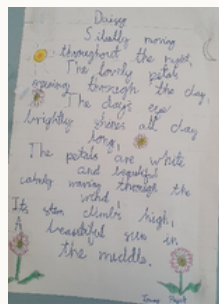 Daisy
Silently moving
throughout the night,
The lovely petals
opening through the day,
The day's eye
brightly shines all day
long,
The petals are white
and beautiful
calmly waving through the
wind,
Its stem climbs high,
A beautiful sun in
the middle.